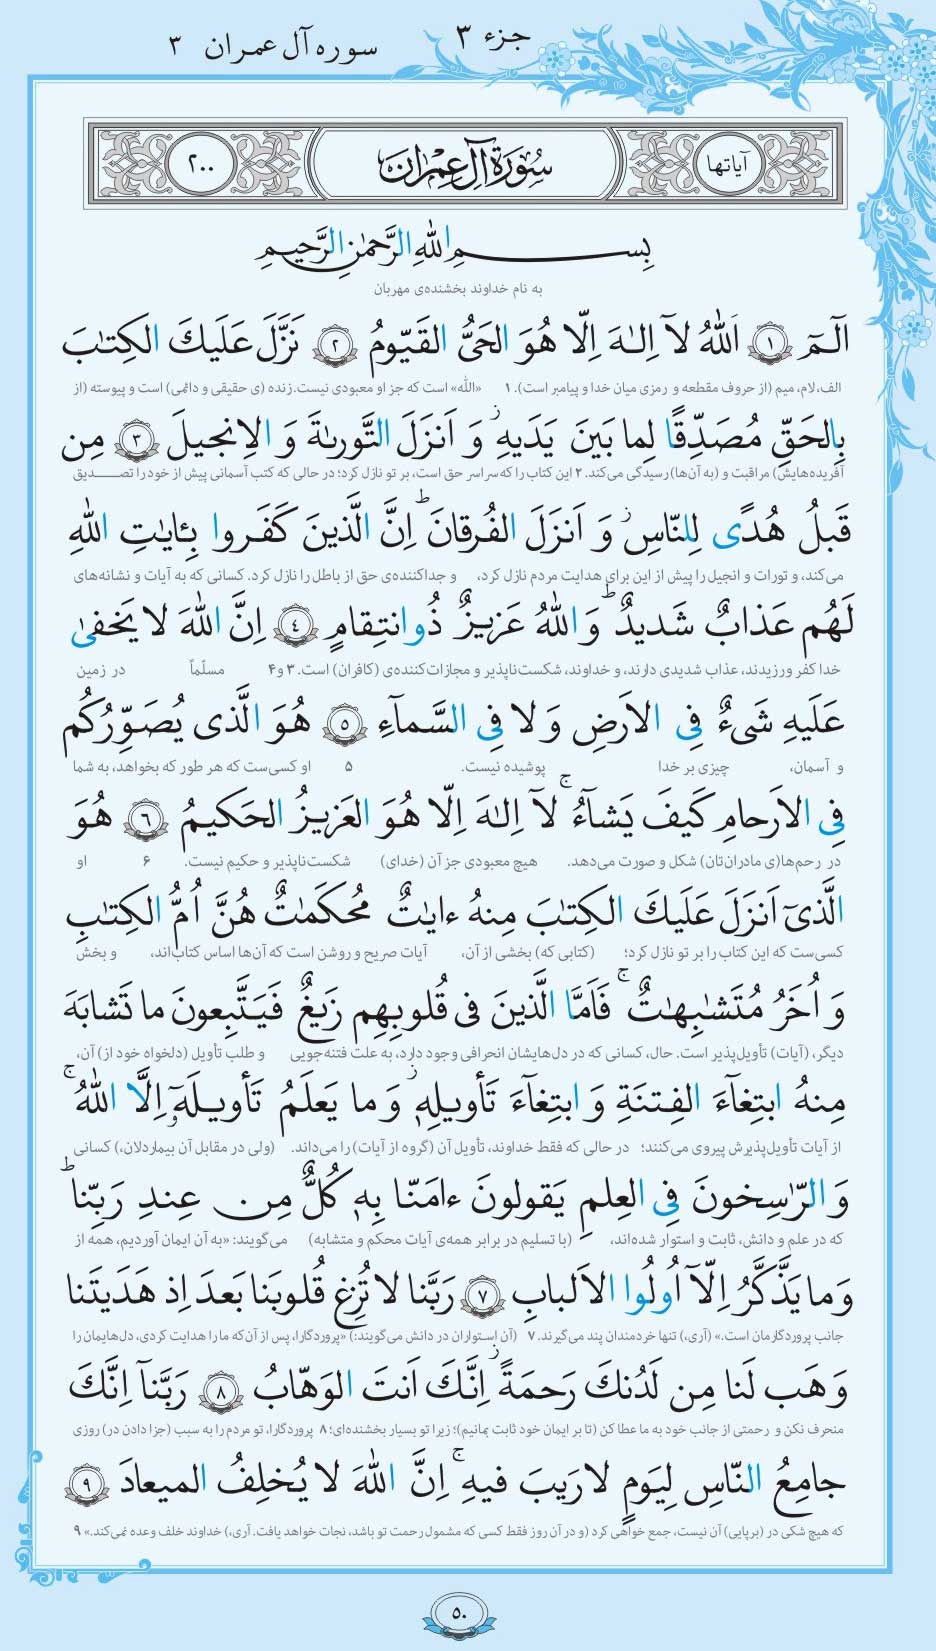 جزء ۳
سوره آل عمران ۳
آیاتها
سُورَةُ آلِ عِمْرَان
۲۰۰
بِسمِ اللهِ الرَّحمٰنِ الرَّحیمِ
به نام خداوند بخشنده‌ی مهربان
الٓمٓ ﴿۱﴾ اَللهُ لآ اِلـٰهَ اِلّا هُوَ الحَیُّ القَیّومُ ﴿۲﴾ نَزَّلَ عَلَیكَ الكِتٰبَ
الف، لام، میم (از حروف مقطعه و رمزی میان خدا و پیامبر است). ۱ «الله» است که جز او معبودی نیست. زنده (ی حقیقی و دائمی) است و پیوسته (از
بِالحَقِّ مُصَدِّقًا لِما بَینَ یَدَیهِ ۫ وَ اَنزَلَ التَّورىٰةَ وَ الاِنجیلَ ﴿۳﴾ مِن
آفریده‌هایش) مراقبت و (به آن‌ها) رسیدگی می‌کند. ۲ این کتاب را که سراسر حق است، بر تو نازل کرد؛ در حالی که کتب آسمانی پیش از خود را تصدیق
قَبلُ هُدًی لِلنّاسِ ز وَ اَنزَلَ الفُرقانَ ط اِنَّ الَّذینَ كَفَروا بِـٔایٰتِ اللهِ
می‌کند، و تورات و انجیل را پیش از این برای هدایت مردم نازل کرد، و جداکننده‌ی حق از باطل را نازل کرد. کسانی که به آیات و نشانه‌های
لَهُم عَذابٌ شَدیدٌ ط وَ اللهُ عَزیزٌ ذُو انتِقامٍ ﴿٤﴾ اِنَّ اللهَ لا یَخفىٰ
خدا کفر ورزیدند، عذاب شدیدی دارند، و خداوند، شکست‌ناپذیر و مجازات‌کننده‌ی (کافران) است. ۳ و ۴ مسلّماً در زمین
عَلَیهِ شَیءٌ فِی الاَرضِ وَ لا فِی السَّمآءِ ﴿۵﴾ هُوَ الَّذی یُصَوِّرُكُم
و آسمان، چیزی بر خدا پوشیده نیست. ۵ او کسی‌ست که هر طور که بخواهد، به شما
فِی الاَرحامِ كَیفَ یَشآءُ ج لآ اِلـٰهَ اِلّا هُوَ العَزیزُ الحَكیمُ ﴿٦﴾ هُوَ
در رحم‌ها(ی مادران‌تان) شکل و صورت می‌دهد. هیچ معبودی جز آن (خدای) شکست‌ناپذیر و حکیم نیست. ۶ او
الَّذیٓ اَنزَلَ عَلَیكَ الكِتٰبَ مِنهُ ءایٰتٌ مُحكَمٰتٌ هُنَّ اُمُّ الكِتٰبِ
کسی‌ست که این کتاب را بر تو نازل کرد؛ (کتابی که) بخشی از آن، آیات صریح و روشن است که آن‌ها اساس کتاب‌اند، و بخش
وَ اُخَرُ مُتَشٰبِهٰتٌ ج فَاَمَّا الَّذینَ فی قُلوبِهِم زَیغٌ فَیَتَّبِعونَ ما تَشابَهَ
دیگر، (آیات) تأویل‌پذیر است. حال، کسانی که در دل‌هایشان انحرافی وجود دارد، به علت فتنه‌جویی و طلب تأویل (دلخواه خود از) آن،
مِنهُ ابتِغآءَ الفِتنَةِ وَ ابتِغآءَ تَأویلِهٖ ز وَ ما یَعلَمُ تَأویلَهٗٓ اِلَّا اللهُ ج
از آیات تأویل‌پذیرش پیروی می‌کنند؛ در حالی که فقط خداوند، تأویل آن (گروه از آیات) را می‌داند. (ولی در مقابل آن بیماردلان،) کسانی
وَ الرّٰسِخونَ فِی العِلمِ یَقولونَ ءامَنّا بِهٖ كُلٌّ مِن عِندِ رَبِّنا ط
که در علم و دانش، ثابت و استوار شده‌اند، (با تسلیم در برابر همه‌ی آیات محکم و متشابه) می‌گویند: «به آن ایمان آوردیم، همه از
وَ ما یَذَّكَّرُ اِلّآ اُولُوا الاَلبابِ ﴿۷﴾ رَبَّنا لا تُزِغ قُلوبَنا بَعدَ اِذ هَدَیتَنا
جانب پروردگارمان است.» (آری،) تنها خردمندان پند می‌گیرند. ۷ (آن استواران در دانش می‌گویند:) «پروردگارا، پس از آن‌که ما را هدایت کردی، دل‌هایمان را
وَ هَب لَنا مِن لَدُنكَ رَحمَةً ز اِنَّكَ اَنتَ الوَهّابُ ﴿۸﴾ رَبَّنآ اِنَّكَ
منحرف نکن و رحمتی از جانب خود به ما عطا کن (تا بر ایمان خود ثابت بمانیم)؛ زیرا تو بسیار بخشنده‌ای؛ ۸ پروردگارا، تو مردم را به سبب (جزا دادن در) روزی
جامِعُ النّاسِ لِیَومٍ لا رَیبَ فیهِ ج اِنَّ اللهَ لا یُخلِفُ المیعادَ ﴿۹﴾
که هیچ شکی در (برپایی) آن نیست، جمع خواهی کرد (و در آن روز فقط کسی که مشمول رحمت تو باشد، نجات خواهد یافت. آری،) خداوند خلف وعده نمی‌کند.» ۹
۵۰